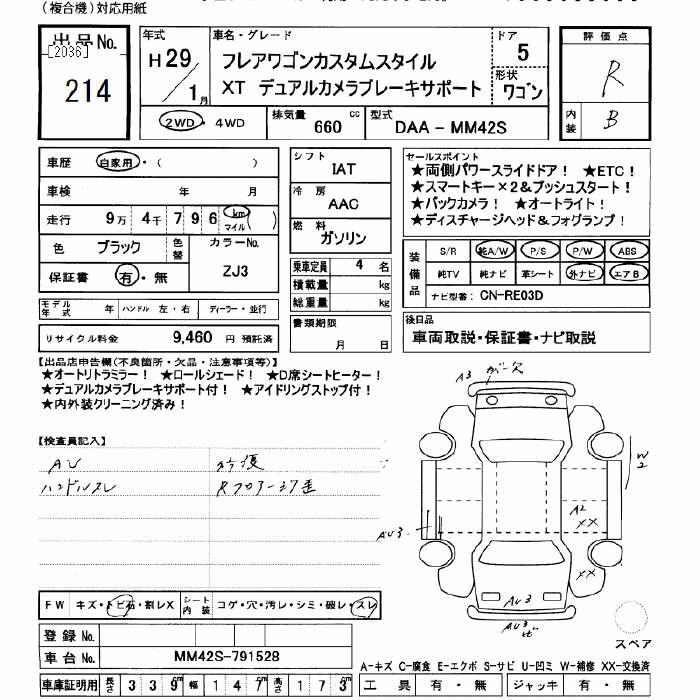 （複合機）対応用紙
出品No.
［2036］
214
年式
H29／1月
車名・グレード
フレアワゴンカスタムスタイル
XT デュアルカメラブレーキサポート
ドア
5
形状
ワゴン
評価点
R
内装
B
2WD・4WD
排気量
660 cc
型式
DAA－MM42S
車歴 自家用・（ ）
車検 年 月
走行 9万 4千 7 9 6 km マイル（ ）
色 ブラック 色替
カラーNo.
ZJ3
保証書 有・無
シフト
IAT
冷房
AAC
燃料
ガソリン
乗車定員 4 名
積載量 kg
総重量 kg
セールスポイント
★両側パワースライドドア！ ★ETC！
★スマートキー×2＆プッシュスタート！
★バックカメラ！ ★オートライト！
★ディスチャージヘッド＆フォグランプ！
装備品
S/R 純A/W P/S P/W ABS
純TV 純ナビ 革シート 外ナビ エアB
ナビ型番： CN-RE03D
モデル年式 年 ハンドル 左・右 ディーラー・並行
リサイクル料金 9,460 円 預託済
書類期限
月 日
後日品
車両取説・保証書・ナビ取説
【出品店申告欄(不良箇所・欠品・注意事項等)】
★オートリトラミラー！ ★ロールシェード！ ★D席シートヒーター！
★デュアルカメラブレーキサポート付！ ★アイドリングストップ付！
★内外装クリーニング済み！
【検査員記入】
AU
ハンドルスレ
Rフロアー
A3
W2
A2
XX
AU3
XX
AU3
AU3
FW キズ・トビ石・割レX
シート内装 コゲ・穴・汚レ・シミ・破レ・スレ
登録No.
車台No. MM42S-791528
スペア
A－キズ C－腐食 E－エクボ S－サビ U－凹ミ W－補修 XX－交換済
車庫証明用 長さ 3 3 9 m 幅 1 4 7 m 高さ 1 7 3 m
工具 有・無 ジャッキ 有・無